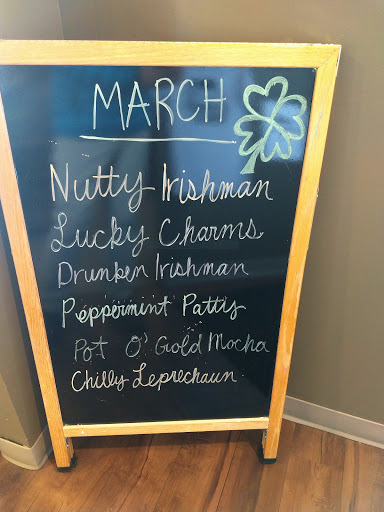 MARCH
Nutty Irishman
Lucky Charms
Drunken Irishman
Peppermint Patty
Pot O' Gold Mocha
Chilly Leprechaun